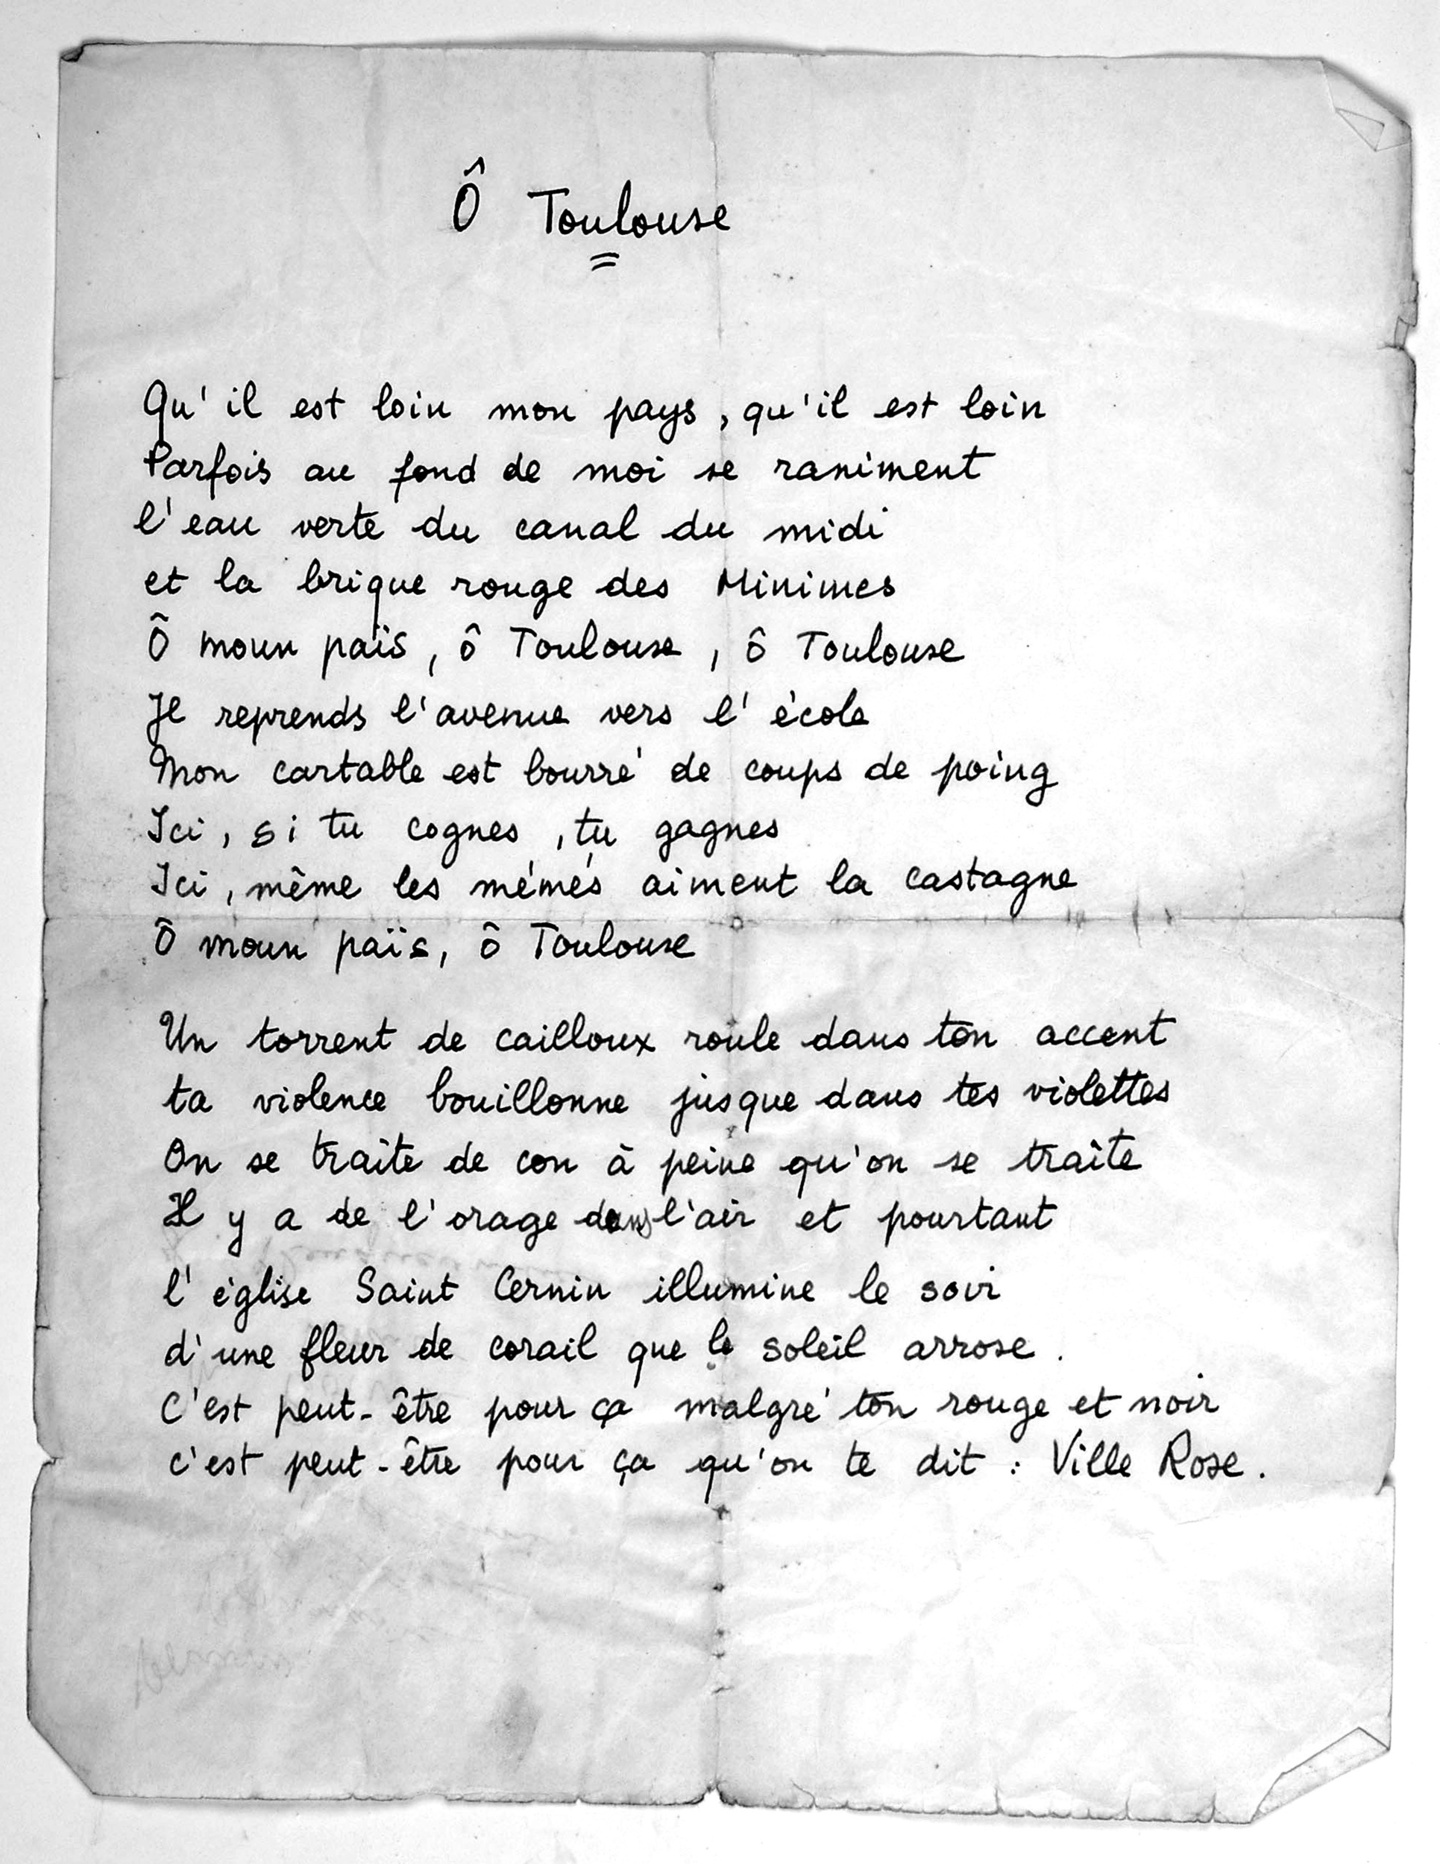 Ô Toulouse
Qu'il est loin mon pays, qu'il est loin
Parfois au fond de moi se raniment
l'eau verte du canal du midi
et la brique rouge des Minimes
Ô moun païs, ô Toulouse, ô Toulouse
Je reprends l'avenue vers l'école
Mon cartable est bourré de coups de poing
Ici, si tu cognes, tu gagnes
Ici, même les mémés aiment la castagne
Ô moun païs, ô Toulouse
Un torrent de cailloux roule dans ton accent
ta violence bouillonne jusque dans tes violettes
On se traite de con à peine qu'on se traite
Il y a de l'orage dans l'air et pourtant
l'église Saint Cernin illumine le soir
d'une fleur de corail que le soleil arrose.
C'est peut-être pour ça malgré ton rouge et noir
c'est peut-être pour ça qu'on te dit : Ville Rose.